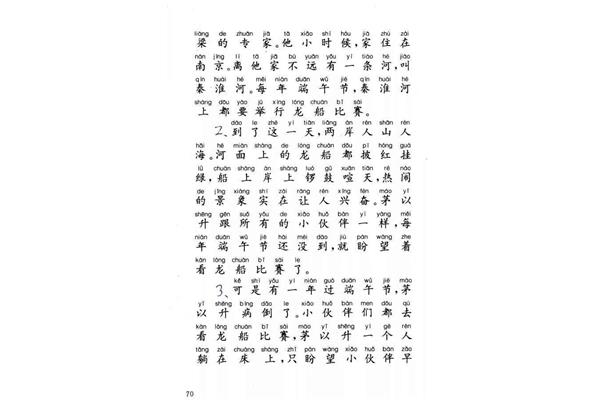 liáng de zhuān jiā tā xiǎo shí hòu jiā zhù zài
梁的专家。他小时候,家住在
nán jīng lí tā jiā bù yuǎn yǒu yì tiáo hé jiào
南京。离他家不远有一条河,叫
qín huái hé měi nián duān wǔ jié qín huái hé
秦淮河。每年端午节,秦淮河
shàng dōu yào jǔ xíng lóng chuán bǐ sài
上都要举行龙船比赛。
dào le zhè yì tiān liǎng àn rén shān rén
2、到了这一天,两岸人山人
hǎi hé miàn shàng de lóng chuán dōu pī hóng guà
海。河面上的龙船都披红挂
lǜ chuán shàng àn shàng luó gǔ xuān tiān rè nào
绿,船上岸上锣鼓喧天,热闹
de jǐng xiàng shí zài ràng rén xīng fèn máo yǐ
的景象实在让人兴奋。茅以
shēng gēn suǒ yǒu de xiǎo huǒ bàn yí yàng měi
升跟所有的小伙伴一样,每
nián duān wǔ jié hái méi dào jiù pàn wàng zhe
年端午节还没到,就盼望着
kàn lóng chuán bǐ sài le
看龙船比赛了。
kě shì yǒu yì nián guò duān wǔ jié máo
3、可是有一年过端午节,茅
yǐ shēng bìng dǎo le xiǎo huǒ bàn men dōu qù
以升病倒了。小伙伴们都去
kàn lóng chuán bǐ sài máo yǐ shēng yí gè rén
看龙船比赛,茅以升一个人
tǎng zài chuáng shàng zhǐ pàn wàng xiǎo huǒ bàn zǎo
躺在床上,只盼望小伙伴早
70